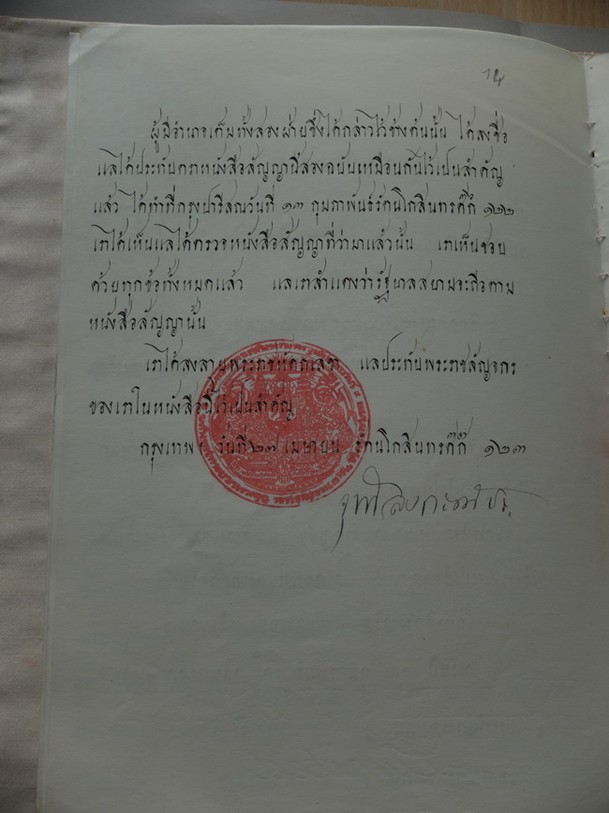 14
ผู้มีอำนาจเต็มทั้งสองฝ่ายซึ่งได้กล่าวไว้ข้างต้นนั้น ได้ลงชื่อ
แลได้ประทับตราหนังสือสัญญานี้สองฉบับเหมือนกันไว้เปนสำคัญ
แล้ว ได้ทำที่กรุงปารีสณวันที่ ๑๓ กุมภาพันธ์รัตนโกสินทรศก๊ ๑๒๒
เราได้เห็นแลได้ตรวจหนังสือสัญญาที่ว่ามาแล้วนั้น เราเห็นชอบ
ด้วยทุกข้อทั้งหมดแล้ว แลเราสำแดงว่ารัฐบาลสยามจะถือตาม
หนังสือสัญญานั้น
เราได้ลงลายพระราชหัตถเลขา แลประทับพระราชลัญจกร
ของเราในหนังสือนี้ไว้เปนสำคัญ
กรุงเทพฯ วันที่ ๒๗ เมษายน รัตนโกสินทรศก๊ ๑๒๓